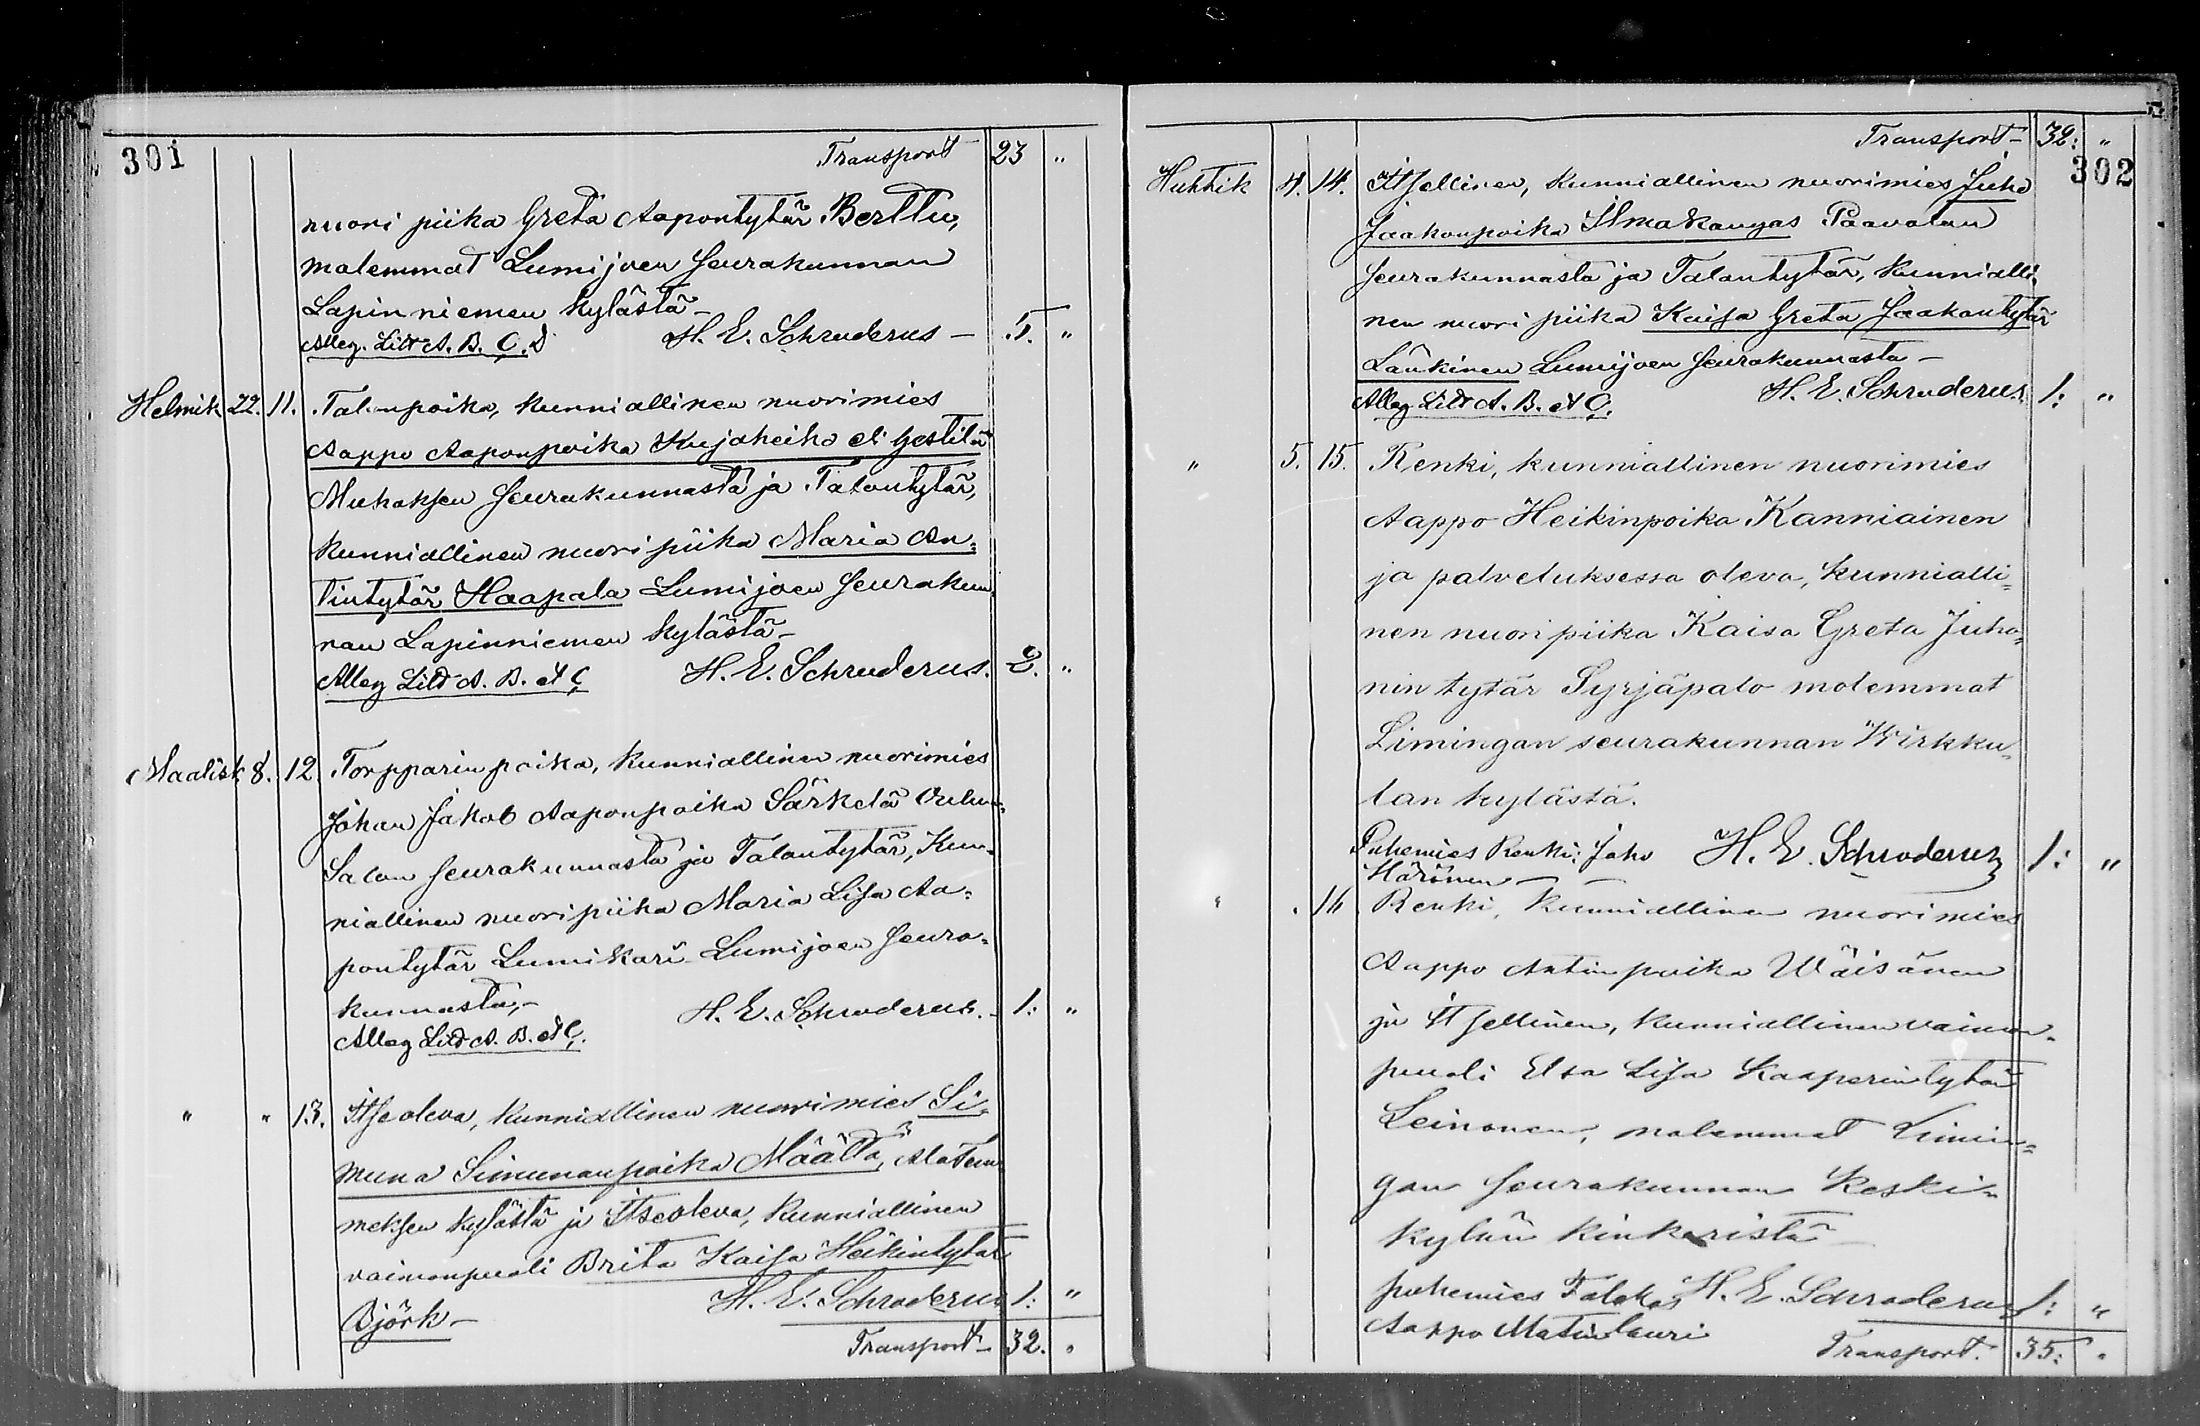 301
Transport 23 "
nuori piika Greta Aapontytär Berttu,
molemmat Lumijoen Seurakunnan
Lapinniemen kylästä –
Alleg. Litt A. B. C. D H. E. Schruderus – 5. "
Helmik 22. 11. Talonpoika, kunniallinen nuorimies
Aappo Aaponpoika Kujaheiho eli Gestilä
Muhoksen Seurakunnasta ja Talontytär,
kunniallinen nuori piika Maria An=
tintytär Haapala Lumijoen Seurakun
nan Lapinniemen kylästä –
Alleg Litt A. B. et C H. E. Schruderus. 2. "
Maalisk 8. 12. Torpparin poika, kunniallinen nuorimies
Johan Jakob Aaponpoika Särkelä Oulun
Salon Seurakunnasta ja Talontytär, kun=
niallinen nuoripiika Maria Lisa Aa=
pontytär Lumikari Lumijoen Seura=
kunnasta, –
H. E. Schruderus. – 1: "
Alleg Litt A. B. et C.
" " 13. Itseoleva, kunniallinen nuorimies Si=
muna Simunanpoika Määttä, Alatem
meksen kylästä ja Itseoleva, kunniallinen
vaimonpuoli Brita Kaisa Heikintytär
Björk – H. E. Schruderus 1: "
Transport – 32. "
Transport – 32: "
302
Huhtik 4. 14. Itsellinen, kunniallinen nuorimies Juho
Jaakonpoika Ilmakangas Paavolan
Seurakunnasta ja Talontytär, kunnialli=
nen nuori piika Kaisa Greta Jaakontytär
Laukinen Lumijoen Seurakunnasta –
Alleg Litt A. B. et C. H. E. Schruderus. 1: "
" 5. 15. Renki, kunniallinen nuorimies
Aappo Heikinpoika Kanniainen
ja palveluksessa oleva, kunnialli=
nen nuori piika Kaisa Greta Juho=
nin tytär Syrjäpalo molemmat
Limingan seurakunnan Wirkku=
lan kylästä.
Puhemies Renki Joho H. E. Schroderus 1: "
Härönen –
" . 16 Renki, kunniallinen nuorimies
Aappo Antinpoika Wäisänen
ja Itsellinen, kunniallinen vaimon=
puoli Elsa Lisa Kaaperintytär
Leinonen, molemmat Limin=
gan Seurakunnan Keski=
kylän kinkeristä –
puhemies Talokas H. E. Schroderus 1: "
Aappo Matinlauri
Transport. 35: "